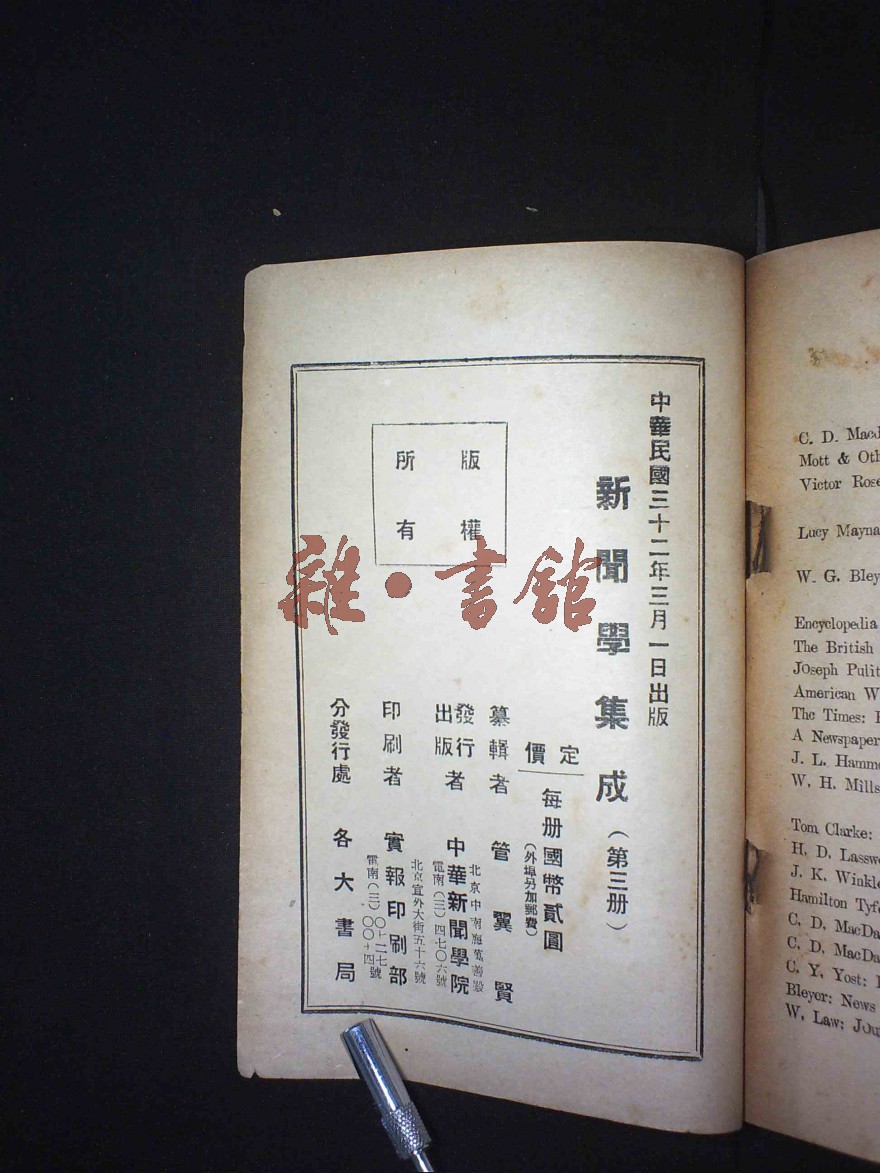 中華民國三十二年三月一日出版
新聞學集成(第三册)
定價
每册國幣貳圓
(外埠另加郵費)
版權所有
纂輯者 管翼賢
發行 出版者 中華新聞學院
北京中南海萬善殿
電南(三)四七〇六號
印刷者 實報印刷部
北京宣外大街五十六號
分發行處 各大書局
雜·書館
C. D. Macd
Mott & Oth
Victor Rose
Lucy Mayna
W. G. Bley
Encyclopedia
The British
Joseph Pulit
American W
The Times:
A Newspaper
J. L. Hamme
W. H. Mills
Tom Clarke:
H. D. Lassw
J. K. Winkle
Hamilton Tyfe
C. D. MacDa
C. D. MacDa
C. Y. Yost:
Bleyer: News
W. Law: Jou